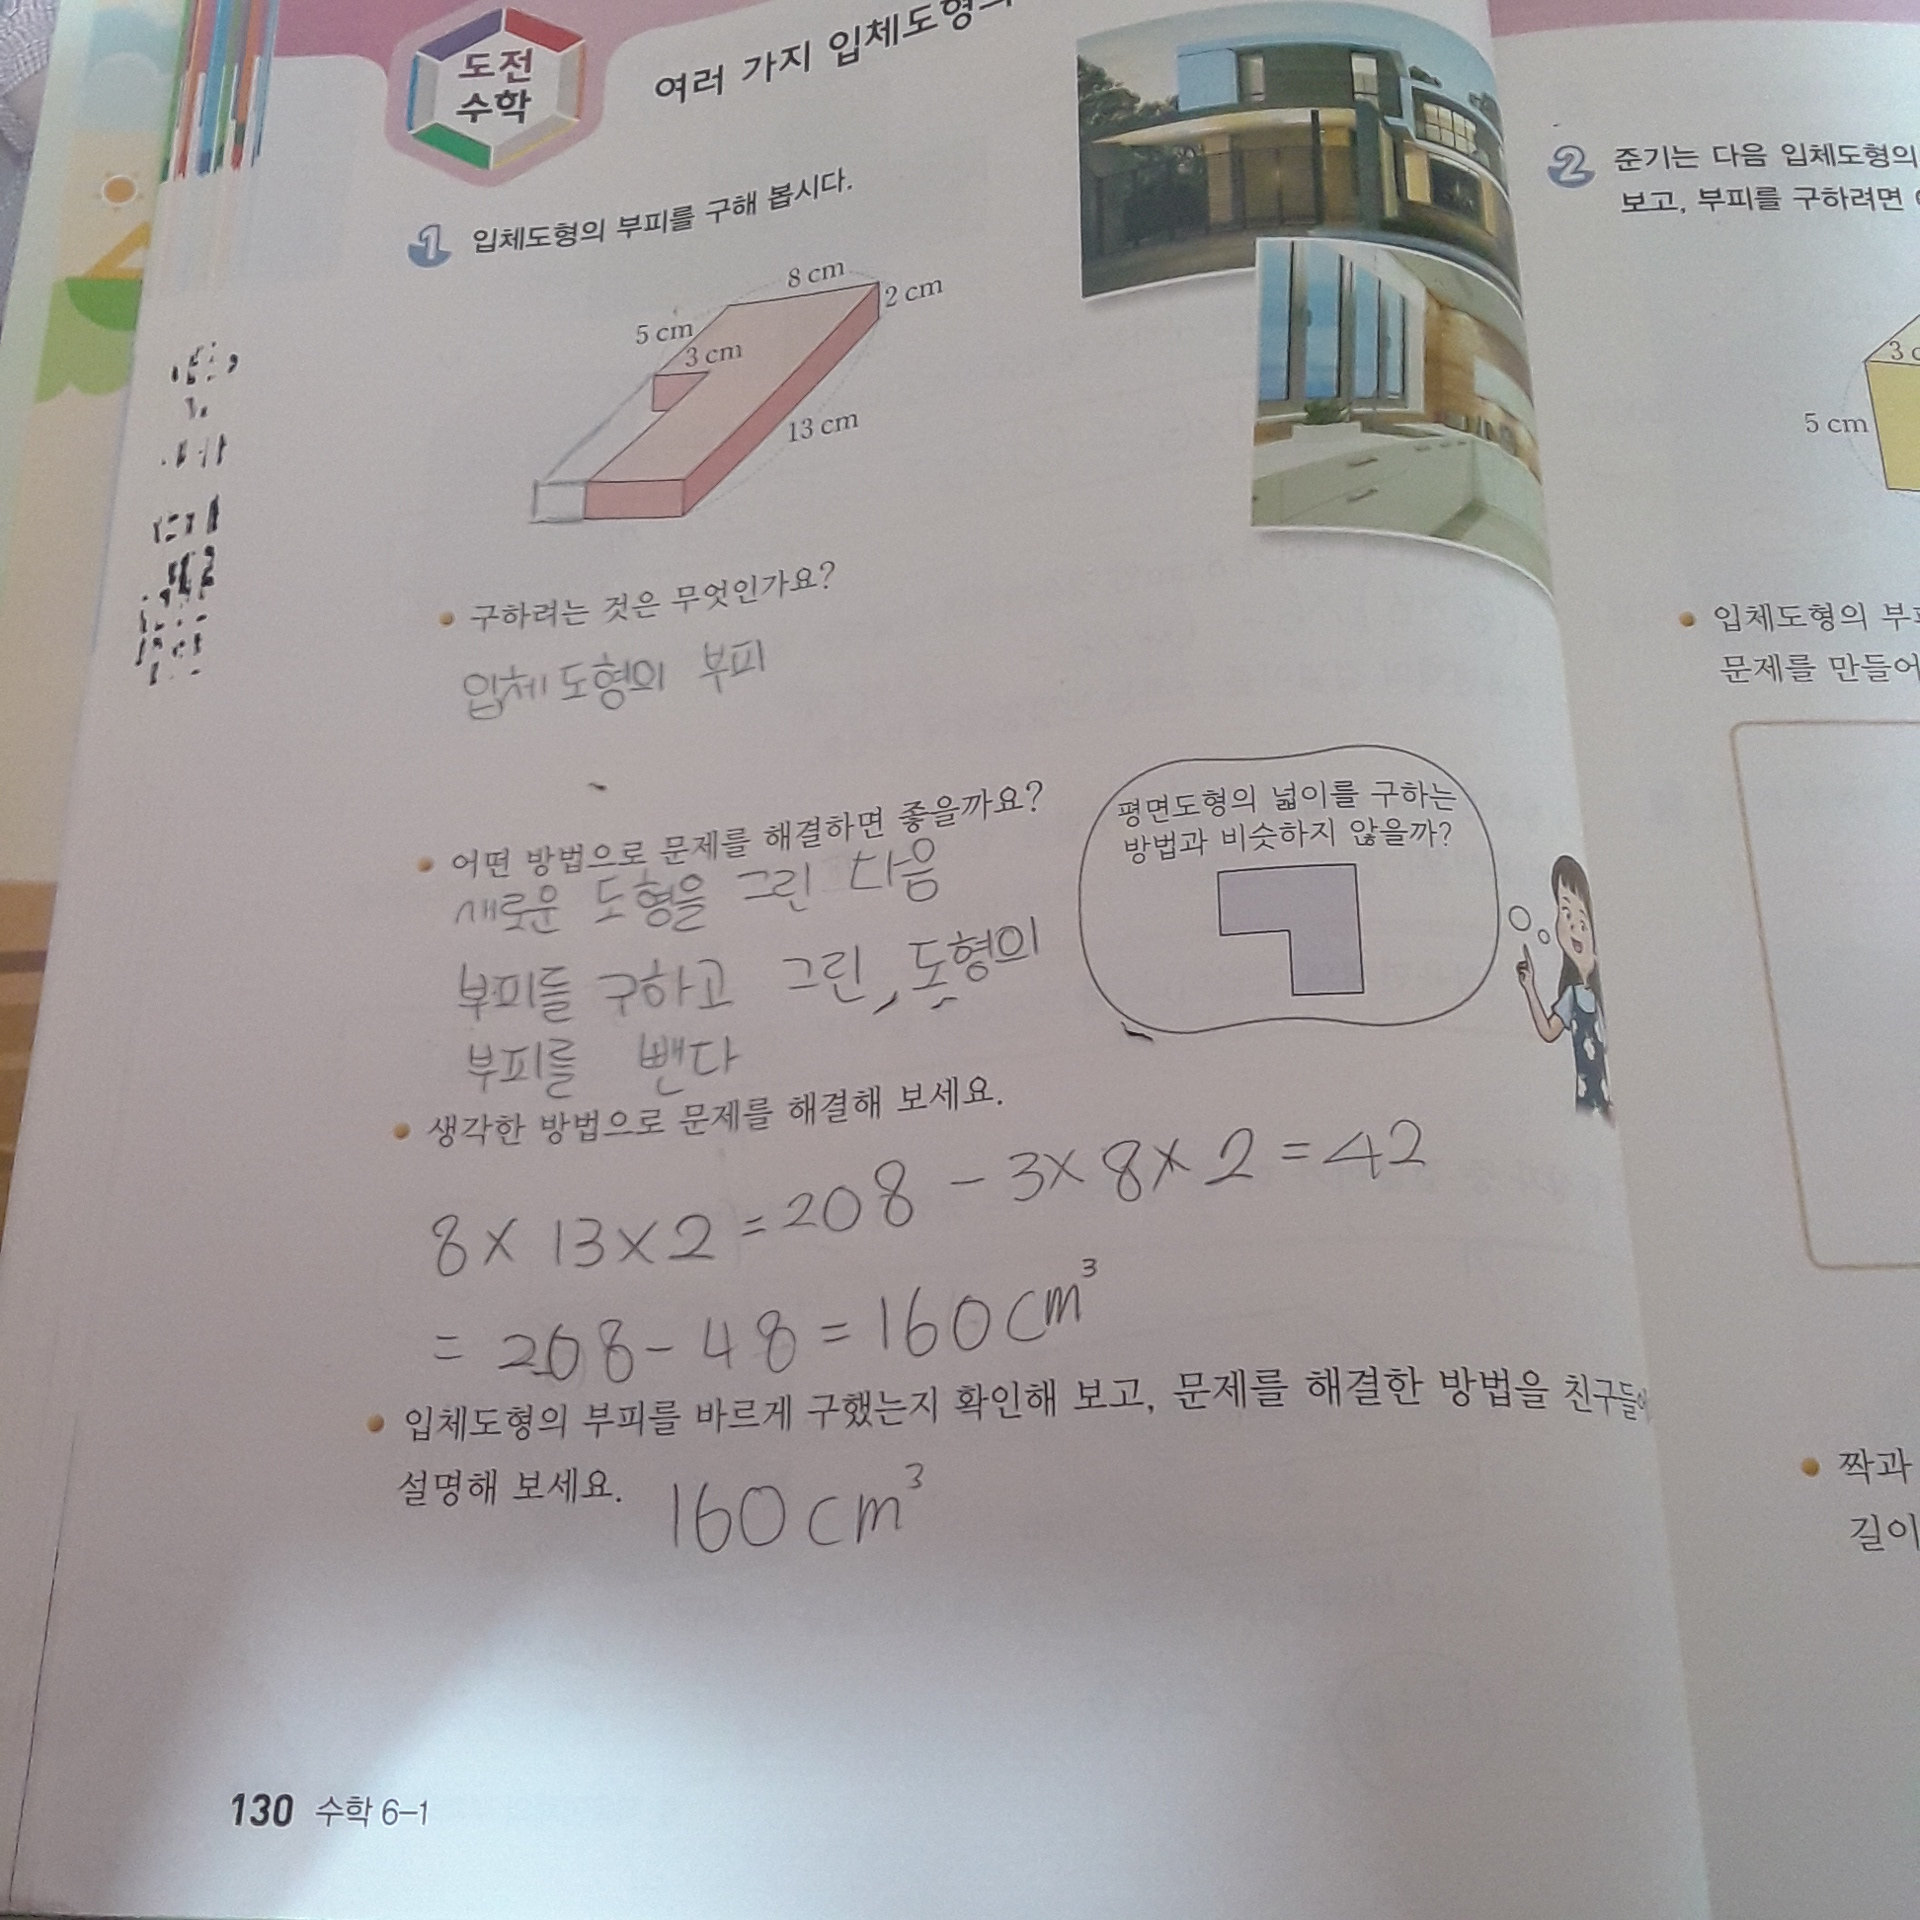 도전
수학
여러 가지 입체도형의
1 입체도형의 부피를 구해 봅시다.
8 cm
2 cm
5 cm
3 cm
13 cm
• 구하려는 것은 무엇인가요?
입체도형의 부피
• 어떤 방법으로 문제를 해결하면 좋을까요?
새로운 도형을 그린 다음
부피를 구하고 그린 도형의
부피를 뺀다
평면도형의 넓이를 구하는
방법과 비슷하지 않을까?
• 생각한 방법으로 문제를 해결해 보세요.
8 × 13 × 2 = 208 - 3 × 8 × 2 = 42
= 208 - 48 = 160 cm³
• 입체도형의 부피를 바르게 구했는지 확인해 보고, 문제를 해결한 방법을 친구들에
설명해 보세요.
160 cm³
130 수학 6-1
2 준기는 다음 입체도형의
보고, 부피를 구하려면
3 c
5 cm
• 입체도형의 부피
문제를 만들어
• 짝과
길이